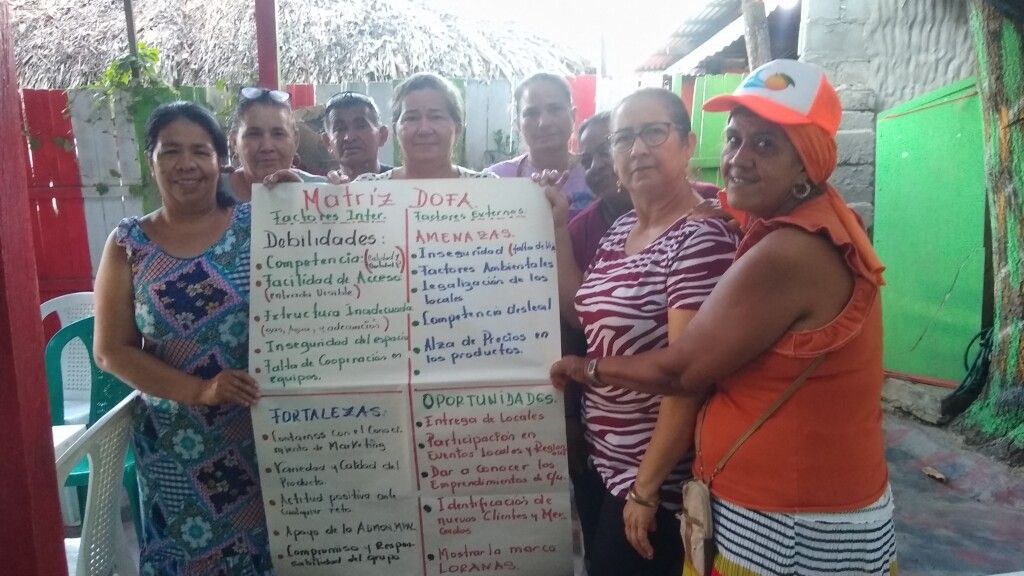 Matriz DOFA
Factores Inter.
Debilidades:
• Competencia (Calidad y
• Facilidad de Acceso
(entrada Visible)
• Estructura Inadecuada
(gas, Agua, y adecuación)
• Inseguridad del espacio
• Falta de Cooperación en
equipos.
Factores Externos
AMENAZAS.
• Inseguridad (falta de
• Factores Ambientales
• Legalización de los
locales
• Competencia desleal
• Alza de Precios en
los productos.
FORTALEZAS:
• Contamos con el Conoci
miento de Marketing
• Variedad y Calidad del
Producto.
• Actitud positiva ante
cualquier reto.
• Apoyo de la ADMON MPAL.
• Compromiso y Respon
sabilidad del grupo
OPORTUNIDADES.
• Entrega de Locales
• Participación en
Eventos Locales y
• Dar a Conocer los
Emprendimientos de c/u.
• Identificación de
nuevos Clientes y Mer
cados
• Mostrar la marca
LORANAS.